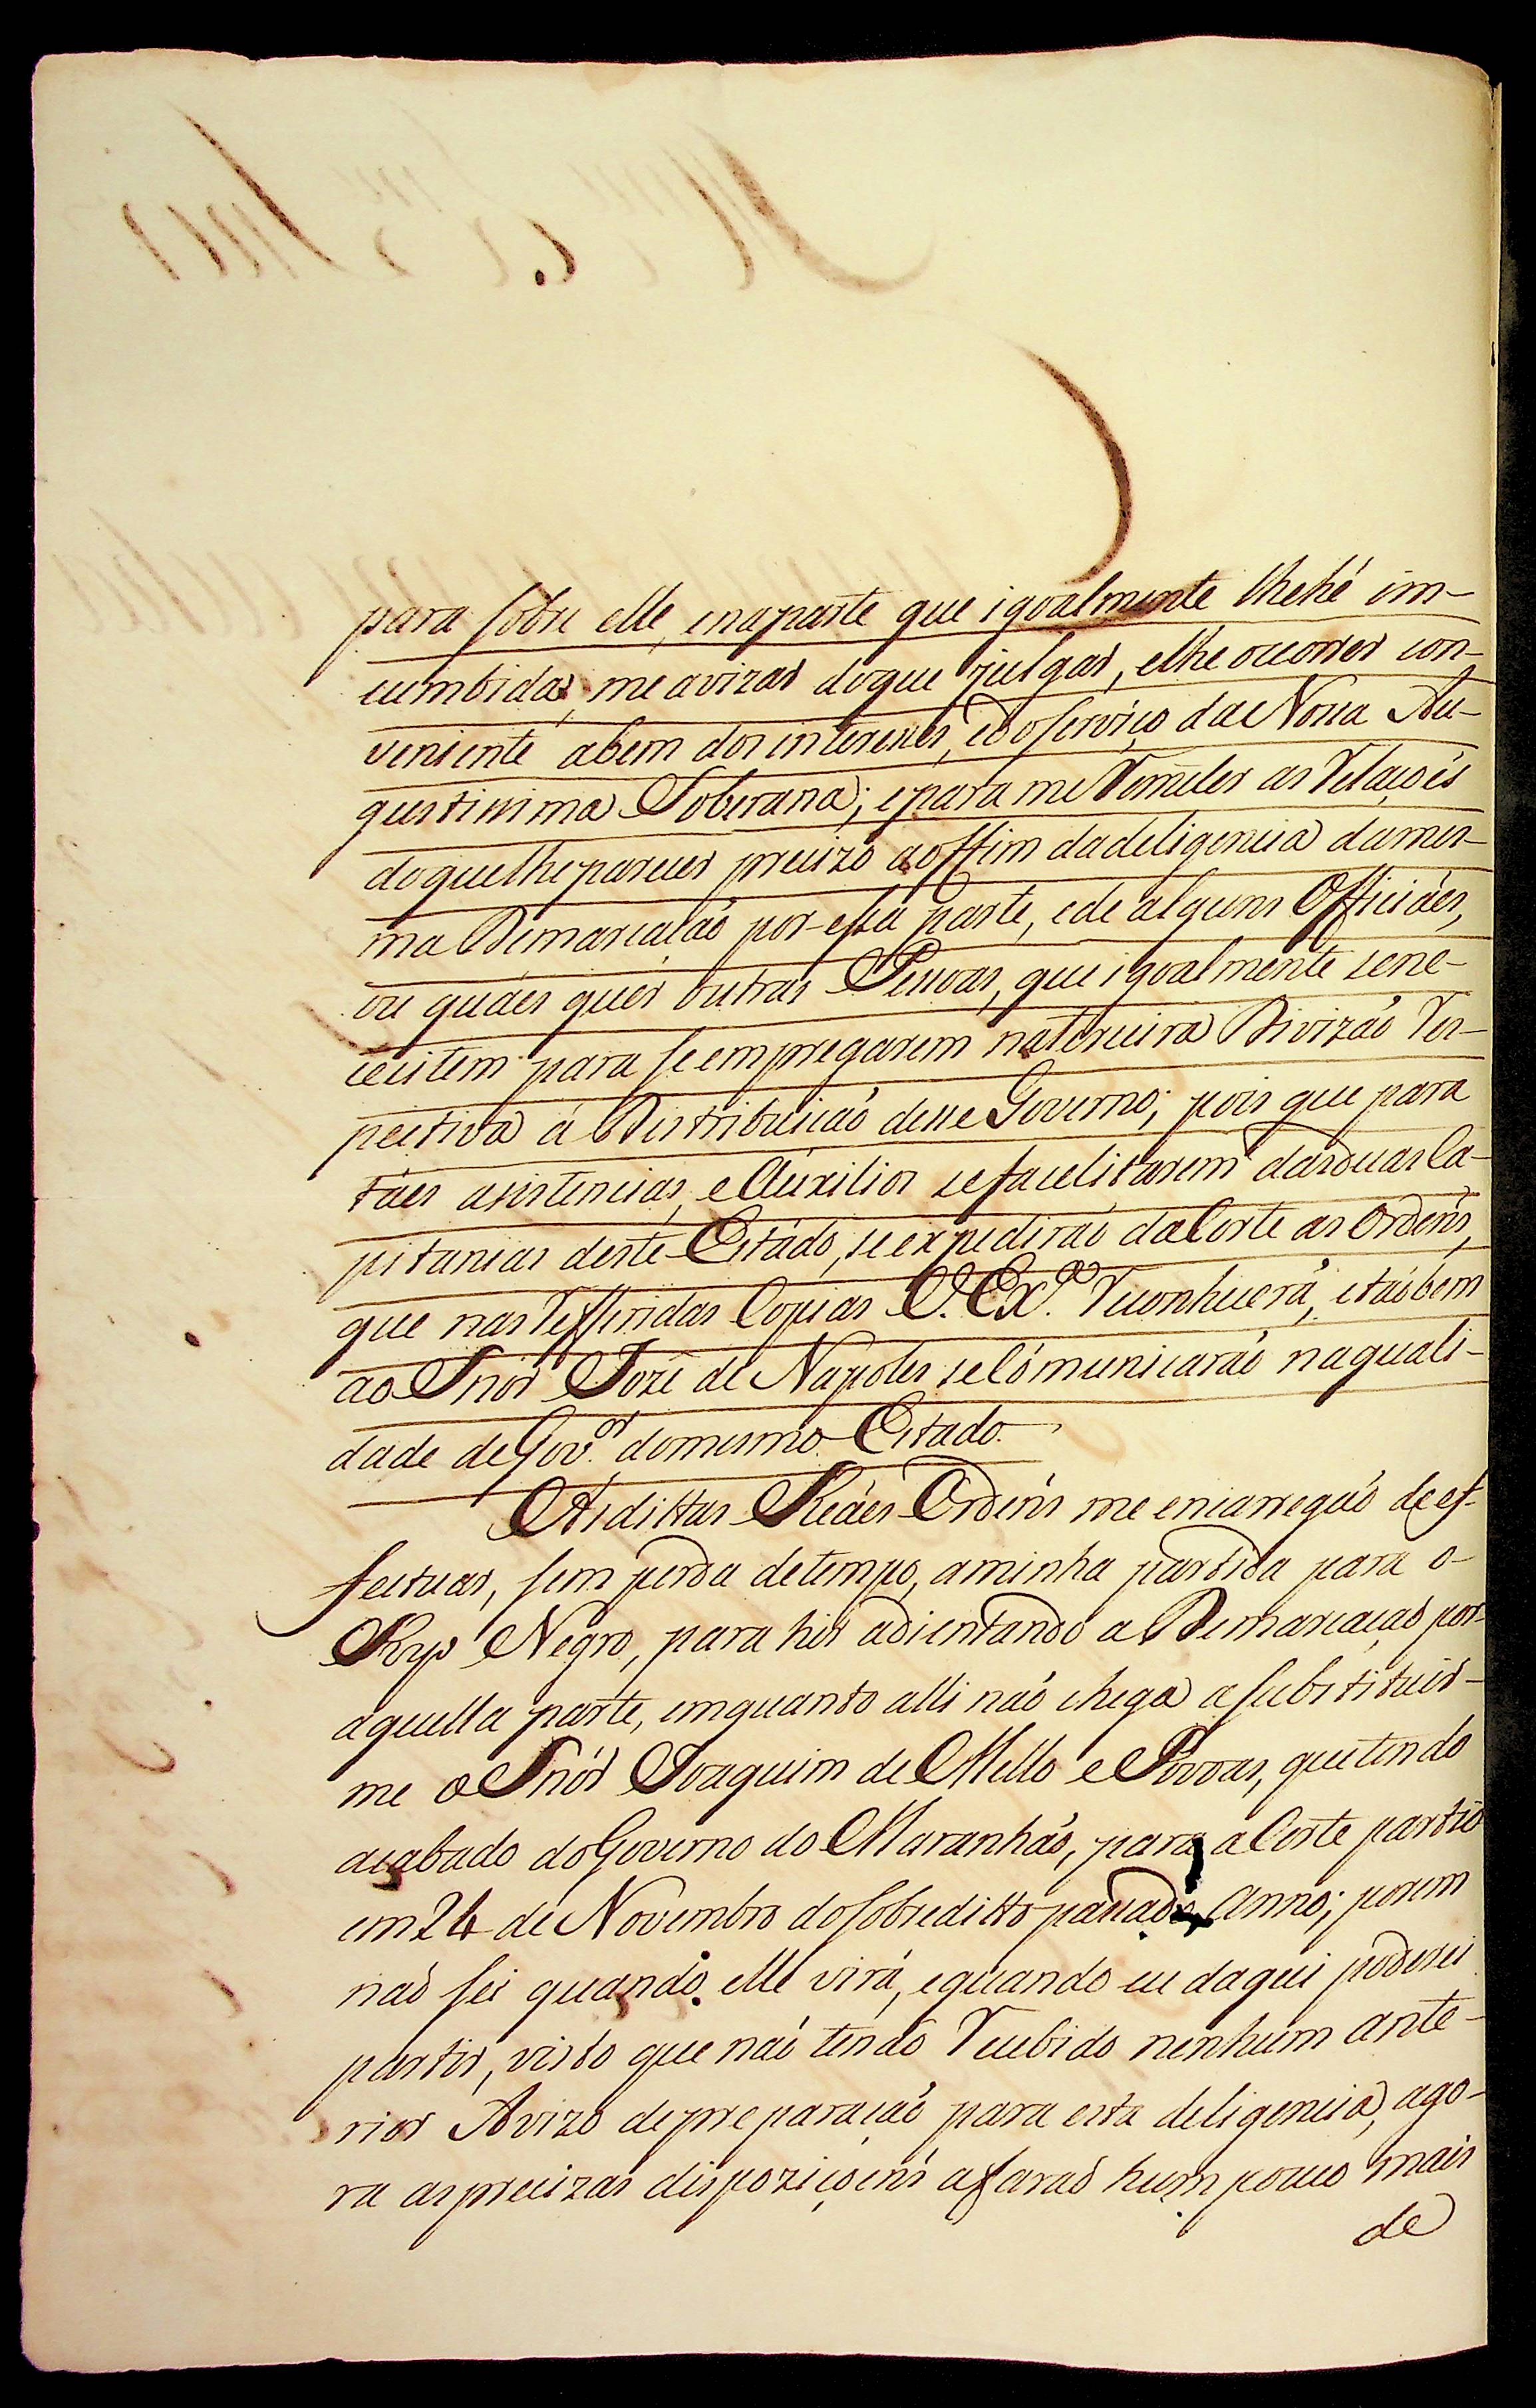 para sobre elle, enaparte que igoalmente lhehé im-
cumbida, me avizar doque julgar, elhe occorrer con-
veniente abem dos interesses, edoserviço da Nossa Au-
gustissima Soberana; epara me remeter as relaçoẽs
doquelheparecer precizo aoffim dadeligencia dames-
ma Demarcaçaõ por essa parte, ede alguns Officiáes,
ou quáes quer outras Pessoas, que igoalmente sene-
cecitem para se empregarem naterceira Divizaõ res-
pectiva á Destribuicaõ desse Governo; pois que para
táes asistencias, e Auxilios sefacelitarem dasduas Ca-
pitanias deste Estádo, seexpediraõ da Corte as Ordens,
que nas refferidas Copias V. Exª. reconhecerá, etaõbem
ao Snõr Jozé de Napoles seComunicaraõ naquali-
dade de Govᵒʳ. domesmo Estado.
As dittas Reáes Ordens me encarregaõ de ef-
fectuar, sem perda detempo, aminha partida para o
Ryo Negro, para hir adientando a Demarcaçaõ por
aquella parte, emquanto alli naõ chega asubstituir-
me o Snõr Joaquim de Mello e Povoas, quetendo
acabado do Governo do Maranhaõ, para a Corte partio
em 24 de Novembro dosobreditto passado Anno; porem
naõ sei quando elle virá, equando eu daqui poderei
partir, visto que naõ tendo recebido nenhum ante-
rior Avizo de preparaçaõ para esta deligencia, ago-
ra asprecizas dispoziçoens afaraõ hum pouco mais
de